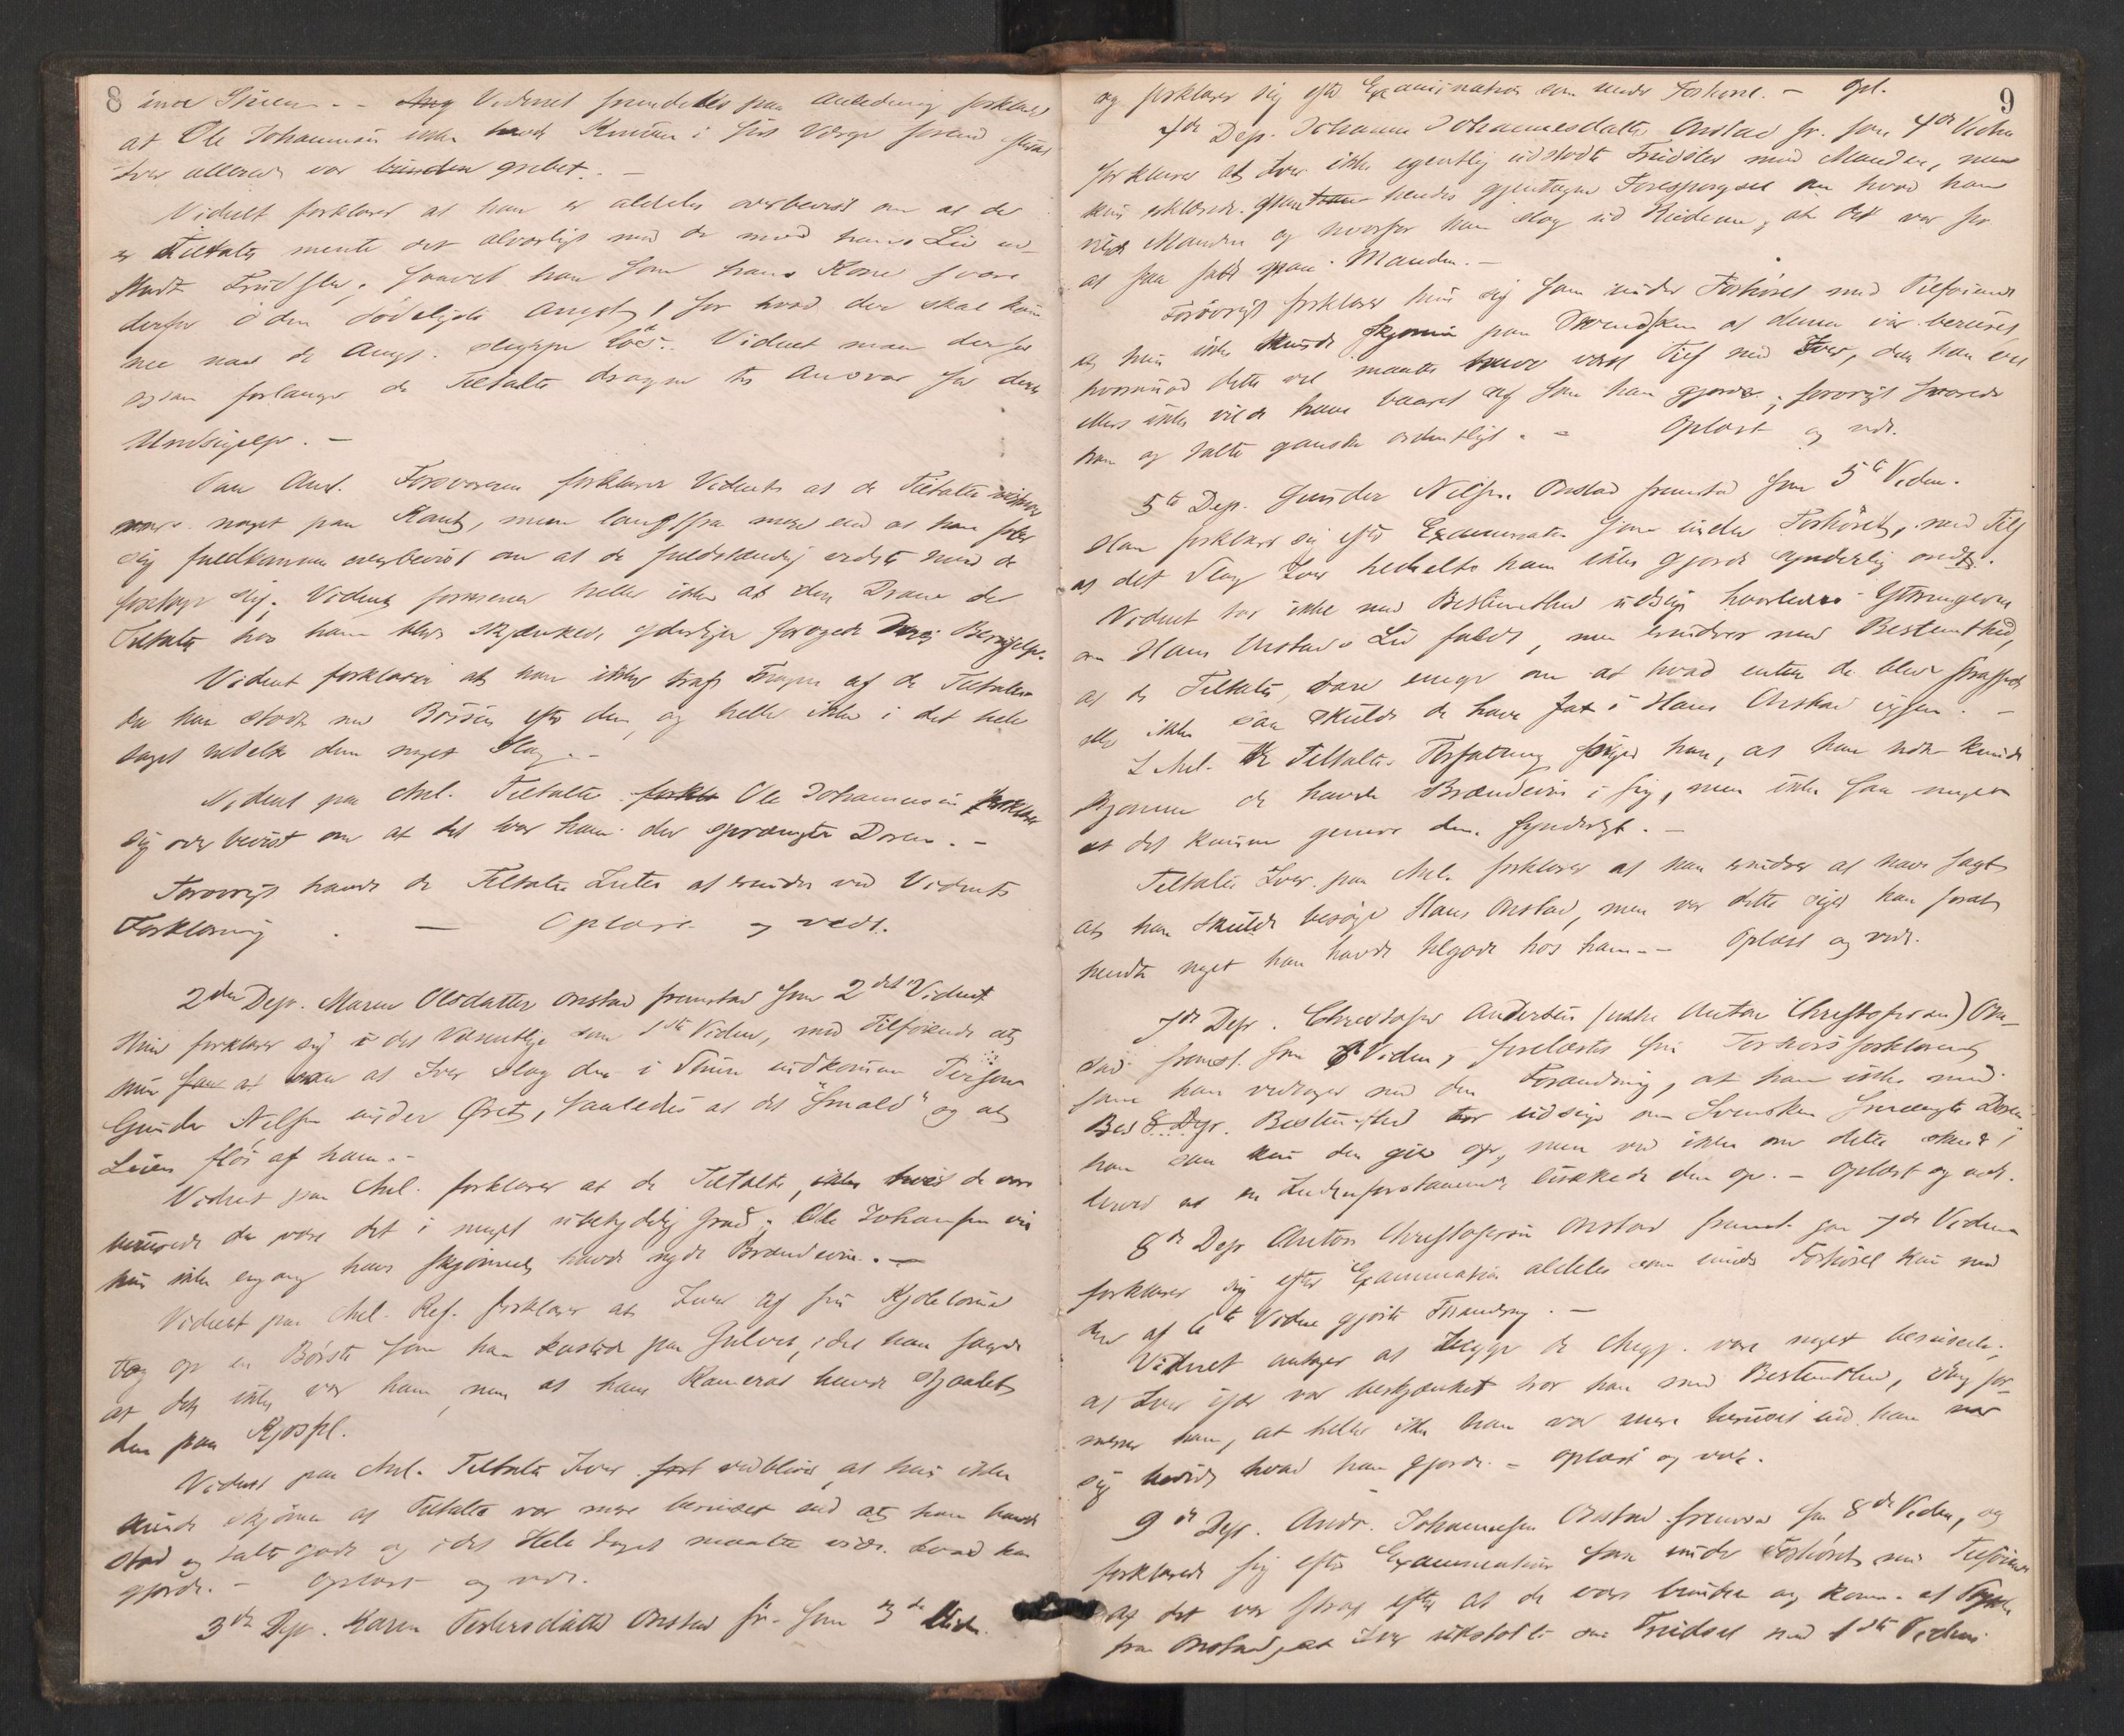 8
inde Stuen. - Ang Vidnet fremdeles paa Anledning forklarer
at Ole Johannesen ikke havde Kniven i sit Værge forend
Iver allerede var bunden grebet. -
Vidnet forklarer at han er aldeles overbevist om at de
Tiltalte mente det alvorligt med de mod hans Liv ud-
stødte Trudsler, saavel han som hans Kone svæve
derfor i den dødeligste Angst, for hvad der skal kom
me naar de Angj. slippe løs. Vidnet maa derfor
ogsaa forlange de Tiltalte dragne til Ansvar for deres
Undsigelse. -
Paa Anl. Forsvareren forklarer Vidnet at de Tiltalte
vare noget paa Kant, men langtfra mere end at han føler
sig fuldkommen overbevist om at de fuldstændig vidste hvad de
foretoge sig. Vidnet formener heller ikke at den Dram de
Tiltalte hos ham blev skjænkede yderligere forøgede Beruselse.
Vidnet forklarer at han ikke traf Nogen af de Tiltalte
da han stødte med Bøssen efter dem, og heller ikke i det hele
taget tildelte dem noget Slag. -
Vidnet paa Anl. Tiltalte forkla Ole Johannesen forklarer
sig overbevist om at det var ham der sprængte Døren. -
Forøvrigt havde de Tiltalte Intet at erindre ved Vidnets
Forklaring. - Oplæst og vedt.
2den Dep. Maren Olsdatter Onstad fremstod som 2det Vidne.
Hun forklarer sig i det Væsentlige som 1ste Vidne, med Tilføiende at
hun saa at at Iver slog den i Stuen indkomne Person
Gunder Nilsen under Øret, saaledes at det "smald" og at
Luen fløi af ham. -
Vidnet paa Anl. forklarer at de Tiltalte, ikke hvis de vare
berusede da vare det i meget ubetydelig Grad; Ole Johansen vil
hun ikke engang have skjønnet havde nydt Brændeviin. -
Vidnet paa Anl. Ref. forklarer at Iver af sin Kjolelomme
tog op en Børste som han kastede paa Gulvet, idet han sagde
at det ikke var ham, men at hans Kamerad havde stjaalet
den paa
Vidnet paa Anl. Tiltalte Iver fork vedbliver, at hun ikke
kunde skjønne at Tiltalte var mere beruset end at han havde
stod og talte godt og i det Hele taget maatte vide hvad han
gjorde. - Oplæst og vedt.
3die Dep. Karen Pedersdatter Onstad fr. som 3die Vidne
9
og forklarer sig efter Examination som under Forhøret. - Opl.
4de Dep. Johanne Johannesdatter Onstad fr. som 4de Vidne
forklarer at Iver ikke egentlig udstødte Trudsler mod Manden, men
kun erklærede paa hendes gjentagne Forespørgsel om hvad han
vilde Manden og hvorfor han slog ud Ruderne, at det var for
at faa fat paa Manden. -
Forøvrigt forklarer hun sig som under Forhøret med Tilføiende
at hun ikke kunde skjønne paa Svendsken at denne var beruset,
hvorimod dette vel maatte have været Tilf. med Iver, da han vel
ellers ikke vilde have baaret sig ad som han gjorde; forøvrigt svarede
han og talte ganske ordentligt. - Oplæst og vedt.
5te Dep. Gunder Nilsen Onstad fremstod som 5te Vidne.
Han forklarer sig efter Examination som under Forhøret, med Tilf.
at det Slag Iver tildelte ham ikke gjorde synderlig ondt.
Vidnet tør ikke med Bestemthed udsige hvorledes Yttringerne
om Hans Onstads Liv faldt, men erindrer med Bestemthed,
at de Tiltalte vare enige om at hvad enten de bleve straffede
eller ikke saa skulde de have fat i Hans Onstad igjen. -
I Anl. de Tiltaltes Forfatning siger han, at han nok kunde
skjønne de havde Brændeviin i sig, men ikke saa meget
at det kunne genere dem synderligt. -
Tiltalte Iver paa Anl. forklarer at han erindrer at have sagt
at han skulde besøge Hans Onstad, men var dette siger han forat
hente noget han havde tilgode hos ham. - Oplæst og vedt.
7de Dep. Christoffer Andersen (uskr. Anton Christofersen) On-
stad fremst. som 6 Vidne, forelæstes sin Forhørsforklaring
som han vedtager med den Forandring, at han ikke med
Bes 8 Dep. Bestemthed tør udsige om Svensken sprængte Døren.
han saa kun den gik op, men ved ikke om dette skede
derved at en Indenforstaaende lukkede den op. - Oplæst og vedt.
8de Dep Anton Christofersen Onstad fremst. som 7de Vidne
forklarer sig efter Examination aldeles som under Forhøret kun med
den af 6te Vidne gjorte Forandring. -
Vidnet antager at begge de Angj. vare noget berusede;
at Iver især var beskjænket tror han med Bestemthed, dog for-
mener han, at heller ikke han var mere beruset end han var
sig bevidst hvad han gjorde. - Oplæst og vedt.
9de Dep. Andr. Johannesen Onstad fremstod som 8de Vidne, og
forklarede sig efter Examination som under Forhøret med Tilføiende
at det var strax efter at de vare bundne og komne et Stykke
fra Onstad, at Iver udstødte sine Trudsel mod 1ste Vidnes